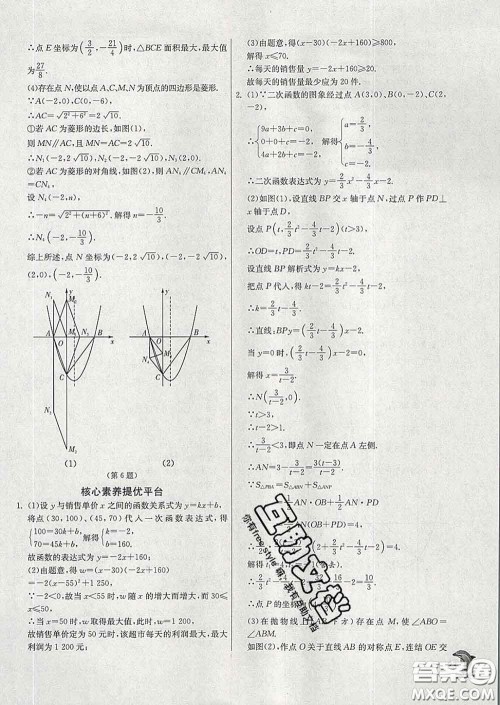 ∴点 E 坐标为(3/2, -21/4)时, △BCE 面积最大, 最大值
为27/8.
(4)存在点 N, 使以点 A、C、M、N 为顶点的四边形是菱形.
∵A(-2,0), C(0,-6),
∴AC=√(2²+6²)=2√10.
①若 AC 为菱形的边长, 如图(1),
则 MN∥AC 且, MN=AC=2√10.
∴N₁(-2,2√10), N₂(-2,-2√10),
N₃(2,0).
②若 AC 为菱形的对角线, 如图(2), 则 AN₄∥CM₄, AN₄
=CN₄.
设 N₄(-2,n),
∴-n=√(2²+(n+6)²). 解得 n=-10/3.
∴N₄(-2,-10/3).
综上所述, 点 N 坐标为(-2,2√10), (-2,-2√10),
(2,0), (-2,-10/3).
(1)
(2)
(第 6 题)
核心素养提优平台
1. (1)设 y 与销售单价 x 之间的函数关系式为 y=kx+b,
将点(30,100)、(45,70)代人一次函数表达式, 得
{100=30k+b, 70=45k+b. 解得{k=-2, b=160.
故函数的表达式为 y=-2x+160;
(2)由题意, 得 w=(x-30)(-2x+160)
=-2(x-55)²+1 250,
∵-2<0, 故当 x<55 时, w 随 x 的增大而增大, 而 30
≤x≤50,
∴当 x=50 时, w 取得最大值. 此时, w=1 200,
故销售单价定为 50 元时, 该超市每天的利润最大, 最大
利润为 1 200 元;
(3)由题意, 得(x-30)(-2x+160)≥800,
解得 x≤70.
∴每天的销售量 y=-2x+160≥20.
∴每天的销售量最少应为 20 件.
2. (1)∵二次函数的图象经过点 A(3,0)、B(0,-2)、
C(2,-2),
∴{9a+3b+c=0, c=-2, 4a+2b+c=-2. 解得{a=2/3, b=-4/3, c=-2.
∴二次函数表达式为 y=2/3x²-4/3x-2.
(2)如图(1), 设直线 BP 交 x 轴于点 C, 过点 P 作 PD⊥
x 轴于点 D,
设点 P(t, 2/3t²-4/3t-2)(t>3),
∴OD=t, PD=2/3t²-4/3t-2.
设直线 BP 解析式为 y=kx-2,
把点 P 代人, 得 kt-2=2/3t²-4/3t-2.
∴k=2/3t-4/3.
∴直线: BPy=(2/3t-4/3)x-2.
当 y=0 时, (2/3t-4/3)x-2=0.
解得 x=3/(t-2).
∵t>3,
∴t-2>1.
∴3/(t-2)<3, 即点 N 一定在点 A 左侧.
∴AN=3-3/(t-2)=3(t-3)/(t-2).
(3)在抛物线上
=∠ABM.
如图(2), 作点 O 关于直线 AB 的对称点 E, 连结 OE 交
互助文档
答案圈
MXQE.COM